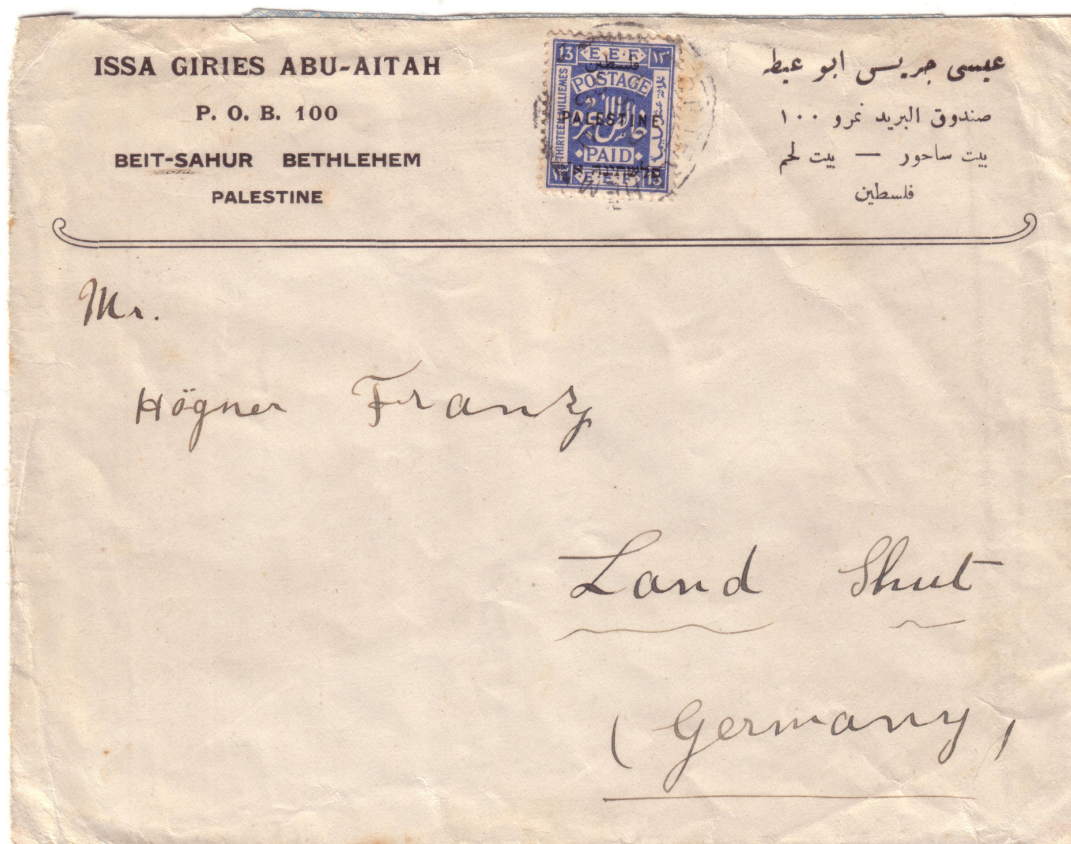 ISSA GIRIES ABU-AITAH
P. O. B. 100
BEIT-SAHUR BETHLEHEM
PALESTINE
13 E.E.F ١٣
فلسطين
POSTAGE
THIRTEEN MILLIEMES
PALESTINE
PAID
١٣ E.E.F 13
عيسى جريس ابو عيطه
صندوق البريد نمرو ١٠٠
بيت ساحور — بيت لحم
فلسطين
Mr.
Högner Franz
Land Shut
(Germany)